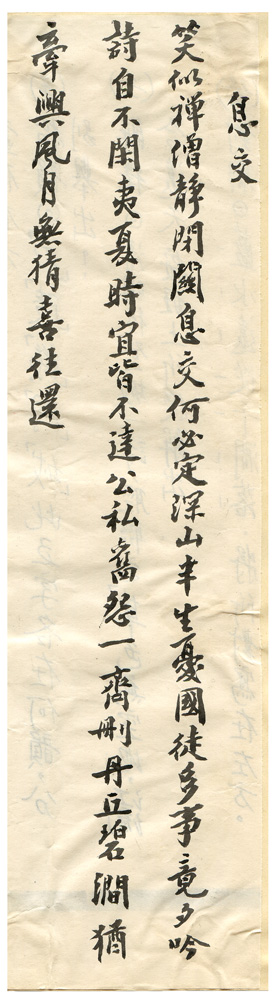 息交
笑似禅僧静閉關息交何必定深山半生憂國徒多事竟夕吟
詩自不閑夷夏時宜皆不達公私舊怨一齊刪丹丘碧澗猶
牽興風月無猜喜往還